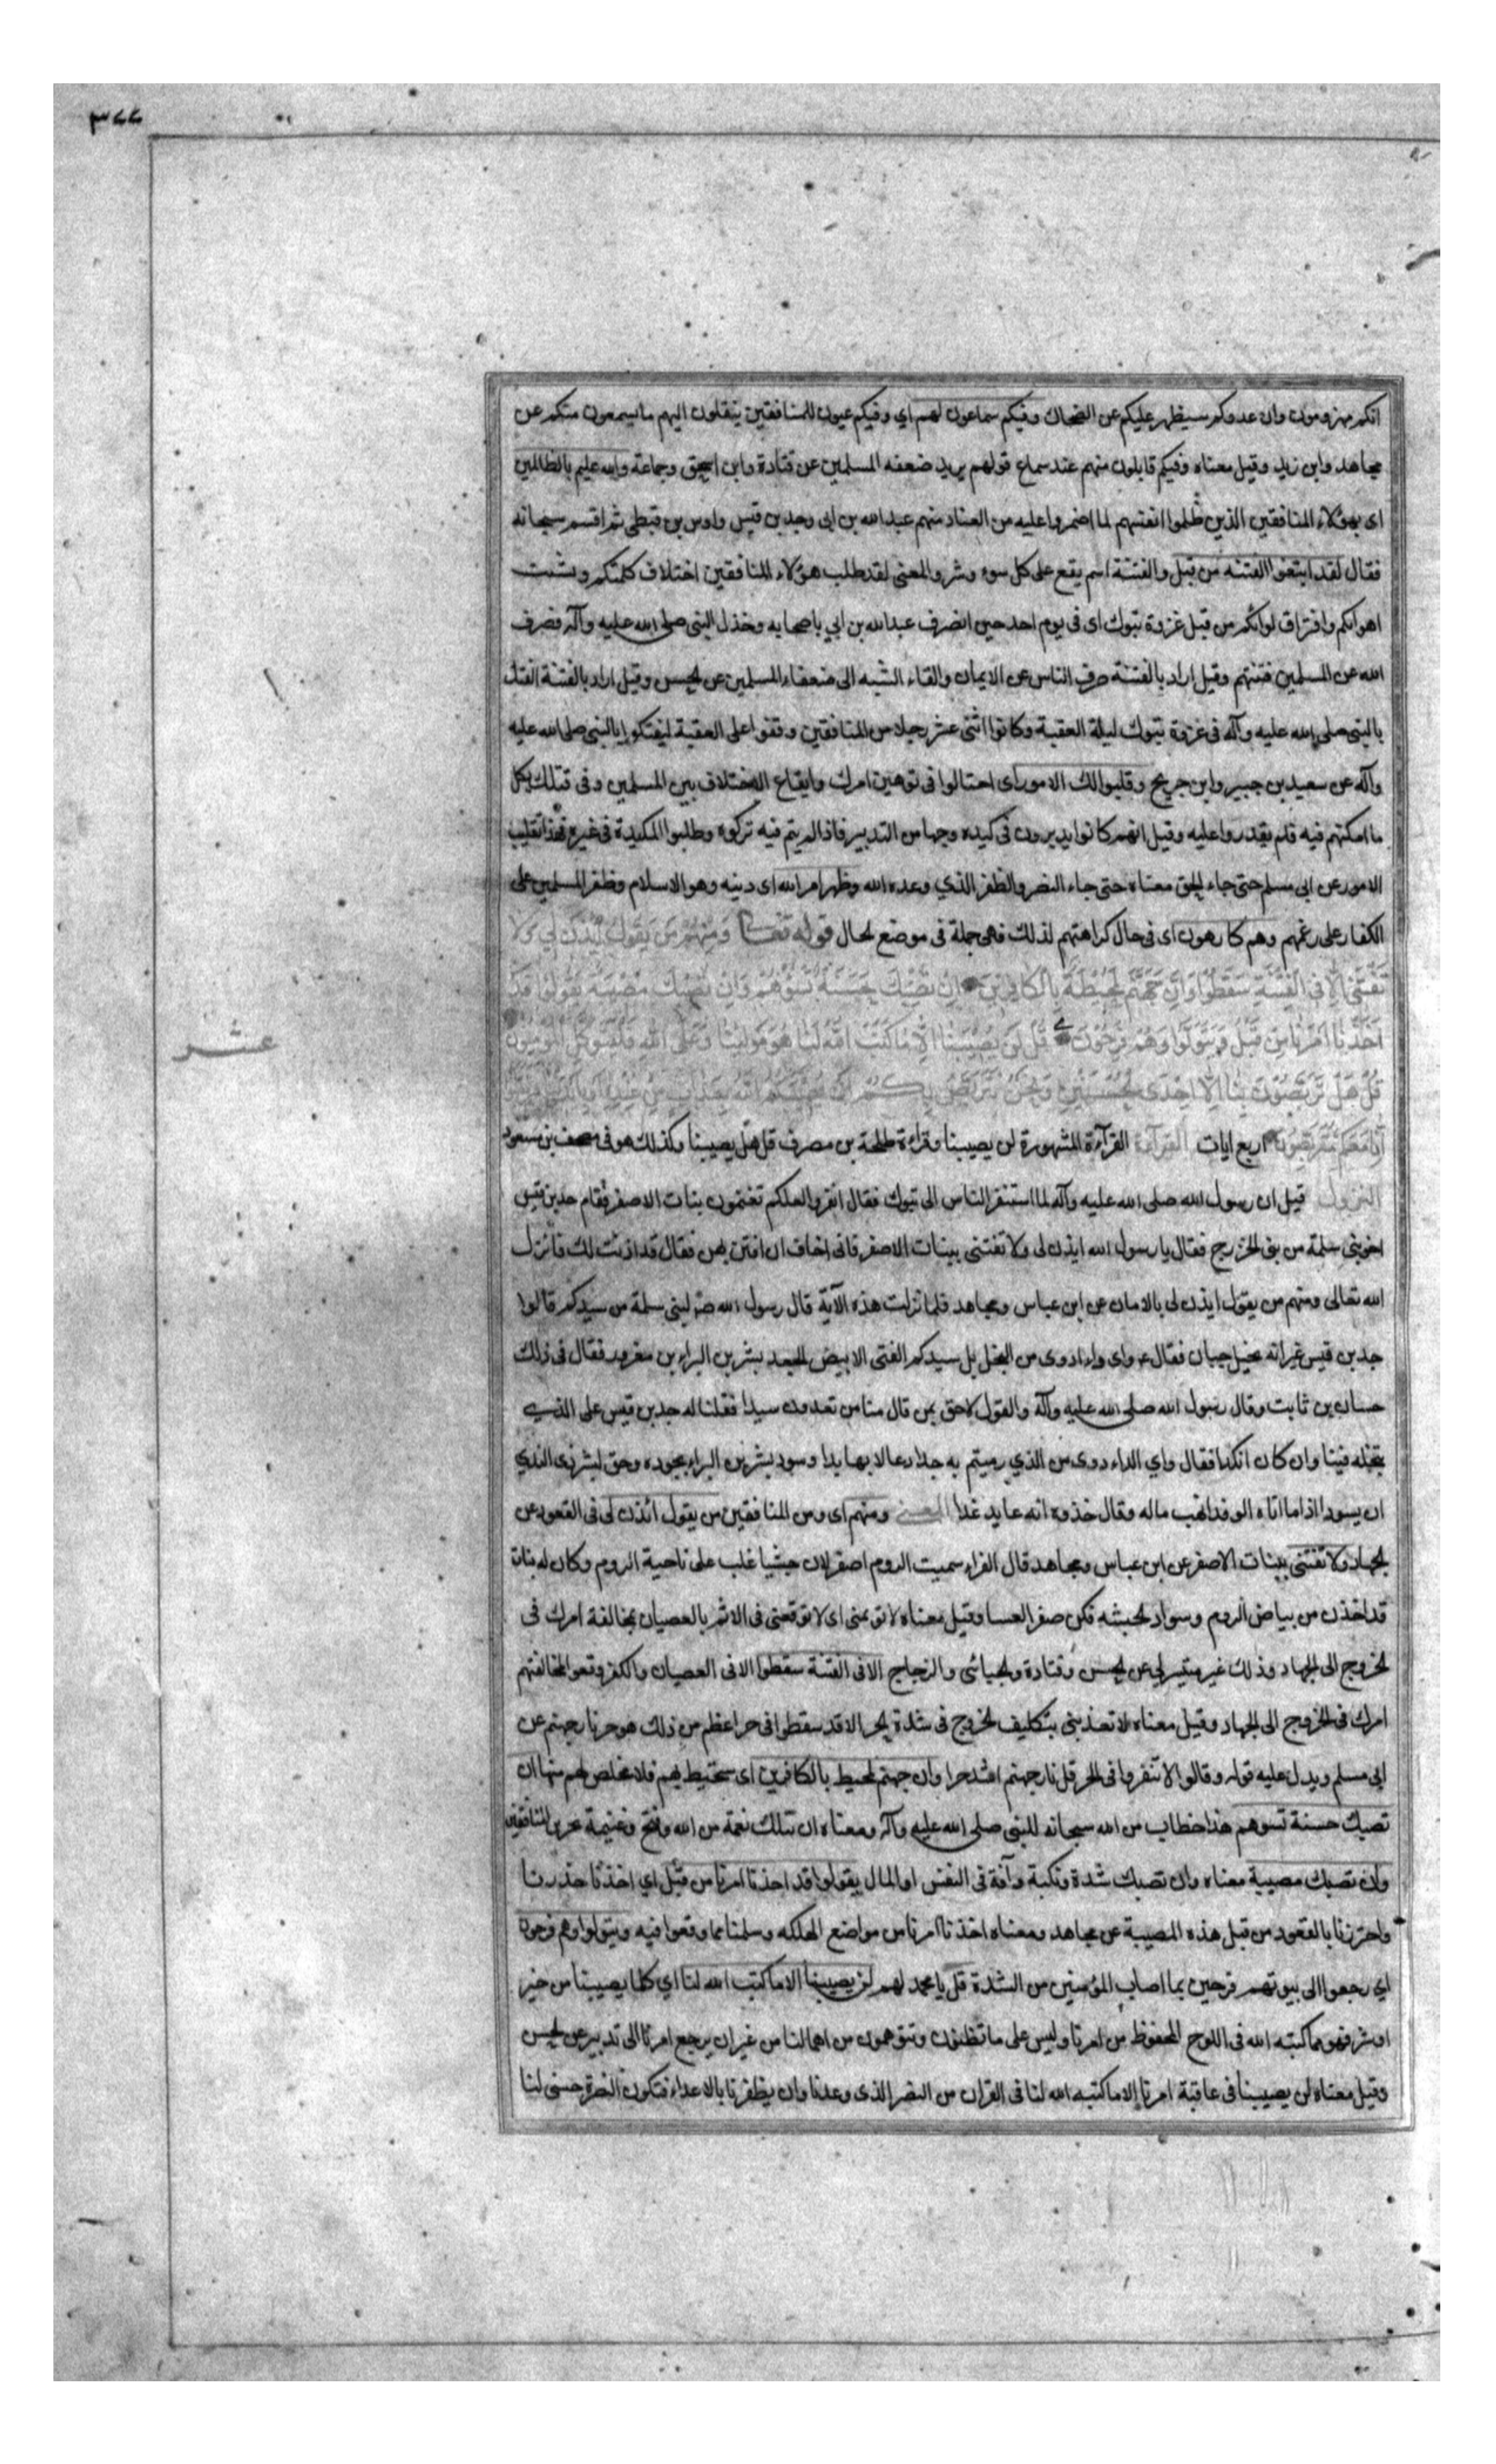 ٣٧٧
انكم مهزومون وان عدوكم سيظهر عليكم عن الضحاك وفيكم سماعون لهم اي وفيكم عيون للمنافقين ينقلون اليهم ما يسمعون منكم عن
مجاهد وابن زيد وقيل معناه وفيكم قابلون منهم عند سماع قولهم يريد ضعفه المسلمين عن قتادة وابن اسحق وجماعة والله عليم بالظالمين
اى بهؤلاء المنافقين الذين ظلموا انفسهم لما اضمروا عليه من الفساد منهم عبد الله بن ابى وجد بن قيس واوس بن قبطى ثم اقسم سبحانه
فقال لقد ابتغوا الفتنه من قبل والفتنة اسم يقع على كل سوء وشر والمعنى لقد طلب هؤلاء المنافقين اختلاف كلمتكم وتشتت
اهوائكم وافتراق لوائكم من قبل غزوة تبوك اى فى يوم احد حين انصرف عبد الله بن ابي باصحابه وخذل النبى صلى الله عليه وآله فصرف
الله عن المسلمين فتنتهم وقيل اراد بالفتنة صرف الناس عن الايمان والقاء الشبه الى ضعفاء المسلمين عن الحسن وقيل اراد بالفتنة الفتك
بالنبى صلى الله عليه وآله فى غزوة تبوك ليلة العقبة وكانوا اثنى عشر رجلا من المنافقين وقفوا على العقبة ليفتكوا بالنبى صلى الله عليه
وآله عن سعيد بن جبير وابن جريج وقلبوا لك الامور اى احتالوا فى توهين امرك وايقاع الاختلاف بين المسلمين وفى قتلك بكل
ما امكنهم فيه فلم يقدروا عليه وقيل انهم كانوا يديرون فى كيده وجها من التدبير فاذا لم يتم فيه تركوه وطلبوا المكيدة فى غيره فهذا تقليب
الامور عن ابى مسلم حتى جاء الحق معناه حتى جاء النصر والظفر الذي وعده الله وظهر امر الله اى دينه وهو الاسلام وظفر المسلمين على
الكفار على رغمهم وهم كارهون اى فى حال كراهتهم لذلك فهى جملة فى موضع الحال قوله تعالى وَمِنْهُمْ مَنْ يَقُولُ ائْذَنْ لِي وَلا
تَفْتِنِّي أَلا فِي الْفِتْنَةِ سَقَطُوا وَإِنَّ جَهَنَّمَ لَمُحِيطَةٌ بِالْكافِرِينَ إِنْ تُصِبْكَ حَسَنَةٌ تَسُؤْهُمْ وَإِنْ تُصِبْكَ مُصِيبَةٌ يَقُولُوا قَدْ
أَخَذْنا أَمْرَنا مِنْ قَبْلُ وَيَتَوَلَّوْا وَهُمْ فَرِحُونَ قُلْ لَنْ يُصِيبَنا إِلاَّ ما كَتَبَ اللهُ لَنا هُوَ مَوْلينا وَعَلَى اللهِ فَلْيَتَوَكَّلِ الْمُؤْمِنُونَ
عشر
قُلْ هَلْ تَرَبَّصُونَ بِنا إِلاَّ إِحْدَى الْحُسْنَيَيْنِ وَنَحْنُ نَتَرَبَّصُ بِكُمْ أَنْ يُصِيبَكُمُ اللهُ بِعَذابٍ مِنْ عِنْدِهِ أَوْ بِأَيْدِينا
إِنَّا مَعَكُمْ مُتَرَبِّصُونَ اربع ايات القرآءة القرآءة المشهورة لن يصيبنا وقراءة طلحة بن مصرف قل هل يصيبنا وكذلك هو فى مصحف بن مسعود
النزول قيل ان رسول الله صلى الله عليه وآله لما استنفر الناس الى تبوك فقال انفروا لعلكم تغنمون بنات الاصفر فقام جد بن قيس
اخو بنى سلمة من بنى الخزرج فقال يا رسول الله ايذن لى ولا تفتنى ببنات الاصفر فانى اخاف ان افتتن بهن فقال قد اذنت لك فانزل
الله تعالى ومنهم من يقول ايذن لى بالامان عن ابن عباس ومجاهد فلما نزلت هذه الآية قال رسول الله ص لبنى سلمة من سيدكم قالوا
جد بن قيس غير انه بخيل جبان فقال ع واى داء ادوى من البخل بل سيدكم الفتى الابيض الجعد بشر بن البراء بن معرور فقال فى ذلك
حسان بن ثابت وقال رسول الله صلى الله عليه وآله والقول لاحق بمن قال منا من تعدون سيدا فقلنا له جد بن قيس على الذى
نبخله فينا وان كان انكدا فقال واي الداء دوى من الذي رميتم به جدا وعالا بها يدا وسود بشر بن البراء بجوده وحق لبشر ذى الندي
ان يسودا اذا ما اتاه الوفد انهب ماله وقال خذوه انه عايد غدا المعنى ومنهم اى ومن المنافقين من يقول ائذن لى فى القعود عن
الجهاد ولا تفتنى ببنات الاصفر عن ابن عباس ومجاهد قال الفراء سميت الروم اصفر لان حبشيا غلب على ناحية الروم وكان له بنات
قد اخذن من بياض الروم وسواد الحبشه فكن صفر العسا وقيل معناه لا تؤثمنى اى لا توقعنى فى الاثم بالعصيان بمخالفة امرك فى
الخروج الى الجهاد وذلك غير متيسر لي عن الحسن وقتادة والجبائى والزجاج الا فى الفتنة سقطوا الا فى العصيان والكفر وقعوا بمخالفتهم
امرك فى الخروج الى الجهاد وقيل معناه لا تعذبنى بتكليف الخروج فى شدة الحر الا قد سقطوا فى حر اعظم من ذلك هو حر نار جهنم عن
ابي مسلم ويدل عليه قوله وقالوا لا تنفروا فى الحر قل نار جهنم اشد حرا وان جهنم لمحيط بالكافرين اى ستحيط بهم فلا مخلص لهم منها ان
تصبك حسنة تسوهم هذا خطاب من الله سبحانه للنبى صلى الله عليه وآله ومعناه ان تنلك نعمة من الله وفتح وغنيمة يحزن المنافقين
وان تصبك مصيبة معناه وان تصبك شدة ونكبة وآفة فى النفس او المال يقولوا قد اخذنا امرنا من قبل اي اخذنا حذرنا
واحترزنا بالقعود من قبل هذه المصيبة عن مجاهد ومعناه اخذنا امرنا من مواضع الهلكه وسلمنا مما وقعوا فيه ويتولوا وهم فرحون
اي رجعوا الى بيوتهم فرحين بما اصاب المؤمنين من الشدة قل يا محمد لهم لن يصيبنا الا ما كتب الله لنا اي كلما يصيبنا من خير
او شر فهو مما كتبه الله فى اللوح المحفوظ من امرنا وليس على ما تظنون وتتوهمون من اهمالنا من غير ان يرجع امرنا الى تدبير عن الحسن
وقيل معناه لن يصيبنا فى عاقبة امرنا إلا ما كتبه الله لنا فى القران من النصر الذى وعدنا وان يظفرنا بالاعداء فتكون النصرة حسنى لنا